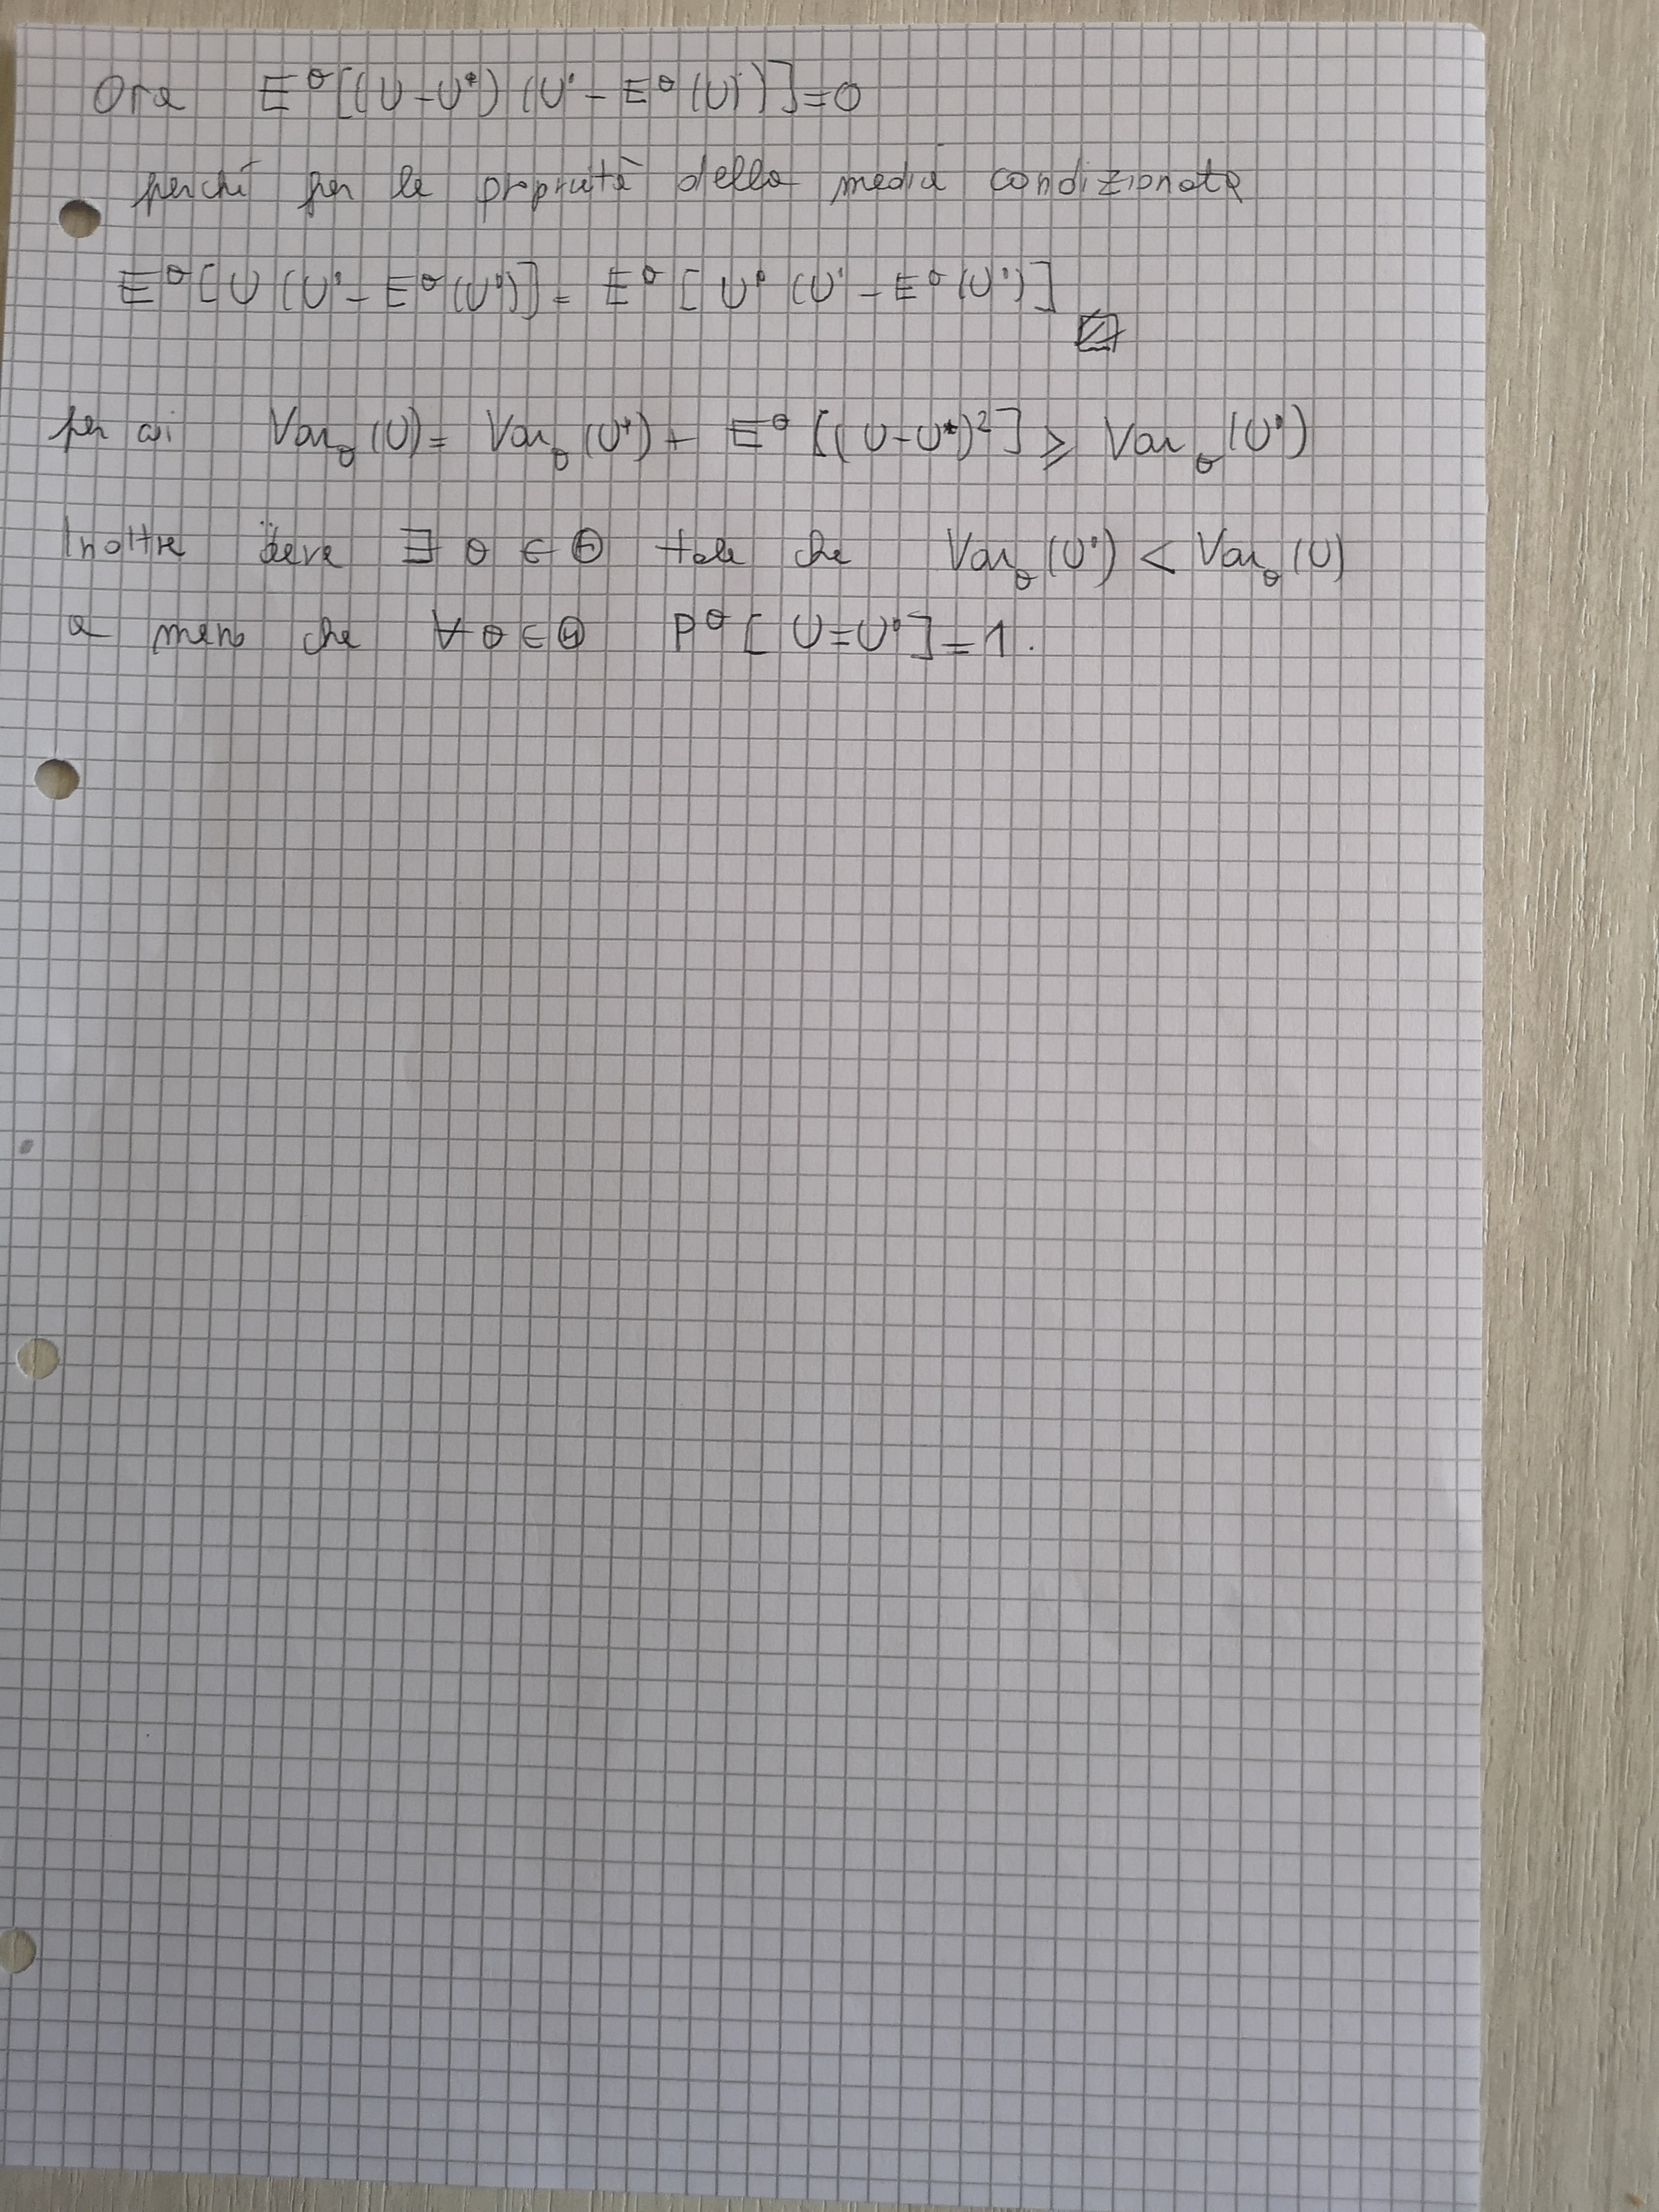 Ora E^θ[(U-U*) (U* - E^θ(U))] = 0
perché per le proprietà della media condizionata
E^θ[U (U* - E^θ(U*))] = E^θ[U* (U* - E^θ(U*)]
per cui Var_θ(U) = Var_θ(U*) + E^θ[(U-U*)²] ⩾ Var_θ(U*)
Inoltre deve ∃ θ ∈ Θ tale che Var_θ(U*) < Var_θ(U)
a meno che ∀ θ ∈ Θ P^θ[U=U*] = 1.